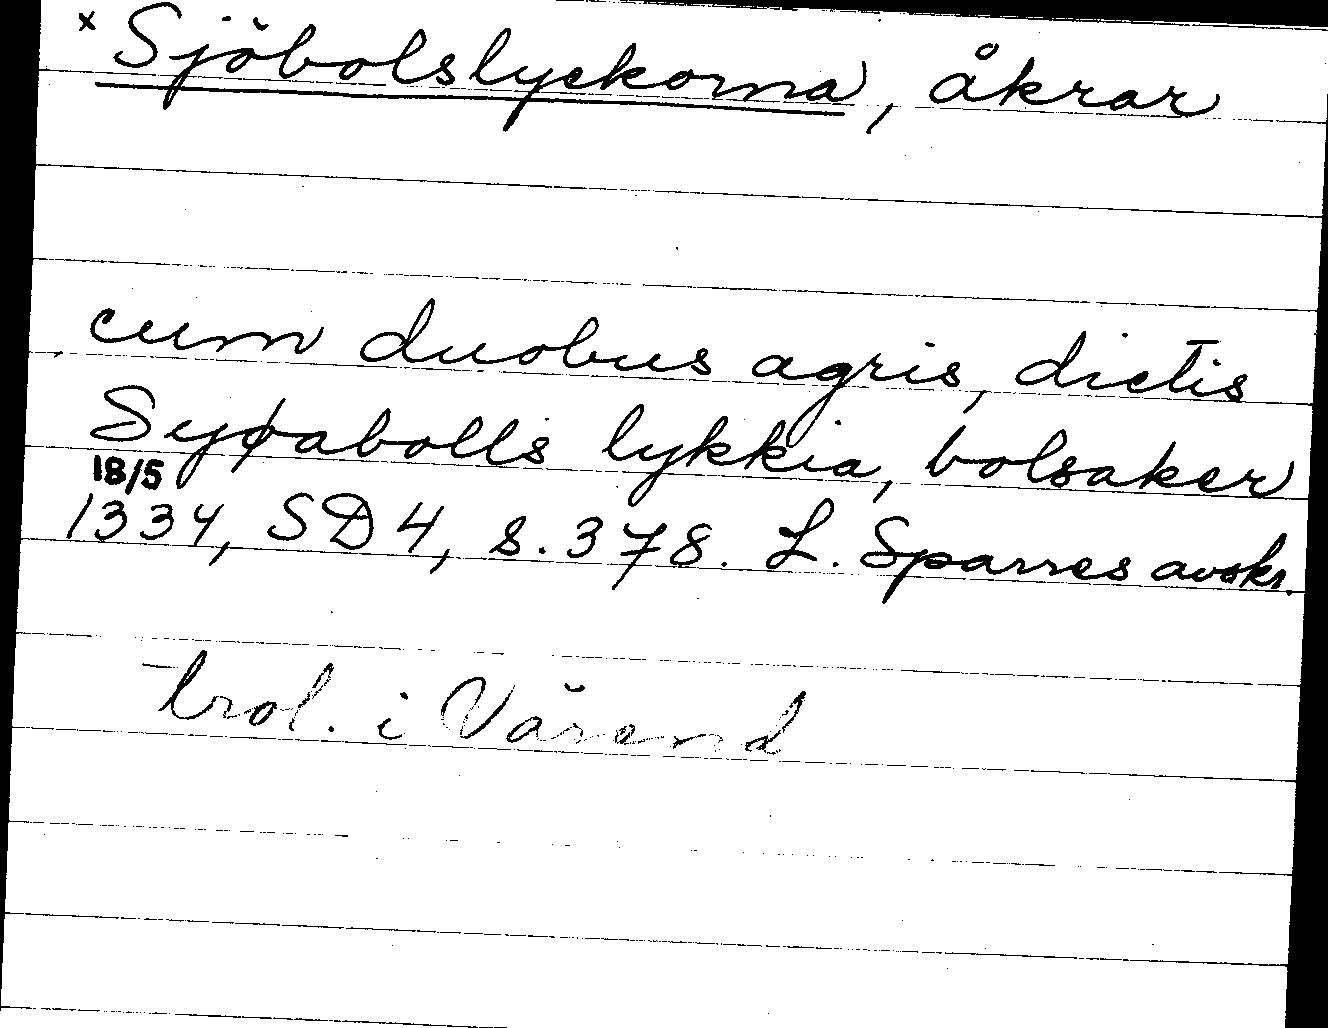 × Sjöbolslyckorna, åkrar
cum duobus agris, dictis
Syøabolls lykkia, bolsaker
18/5
1334, SD 4, s. 378. L. Sparres avskr.
trol. i Värend